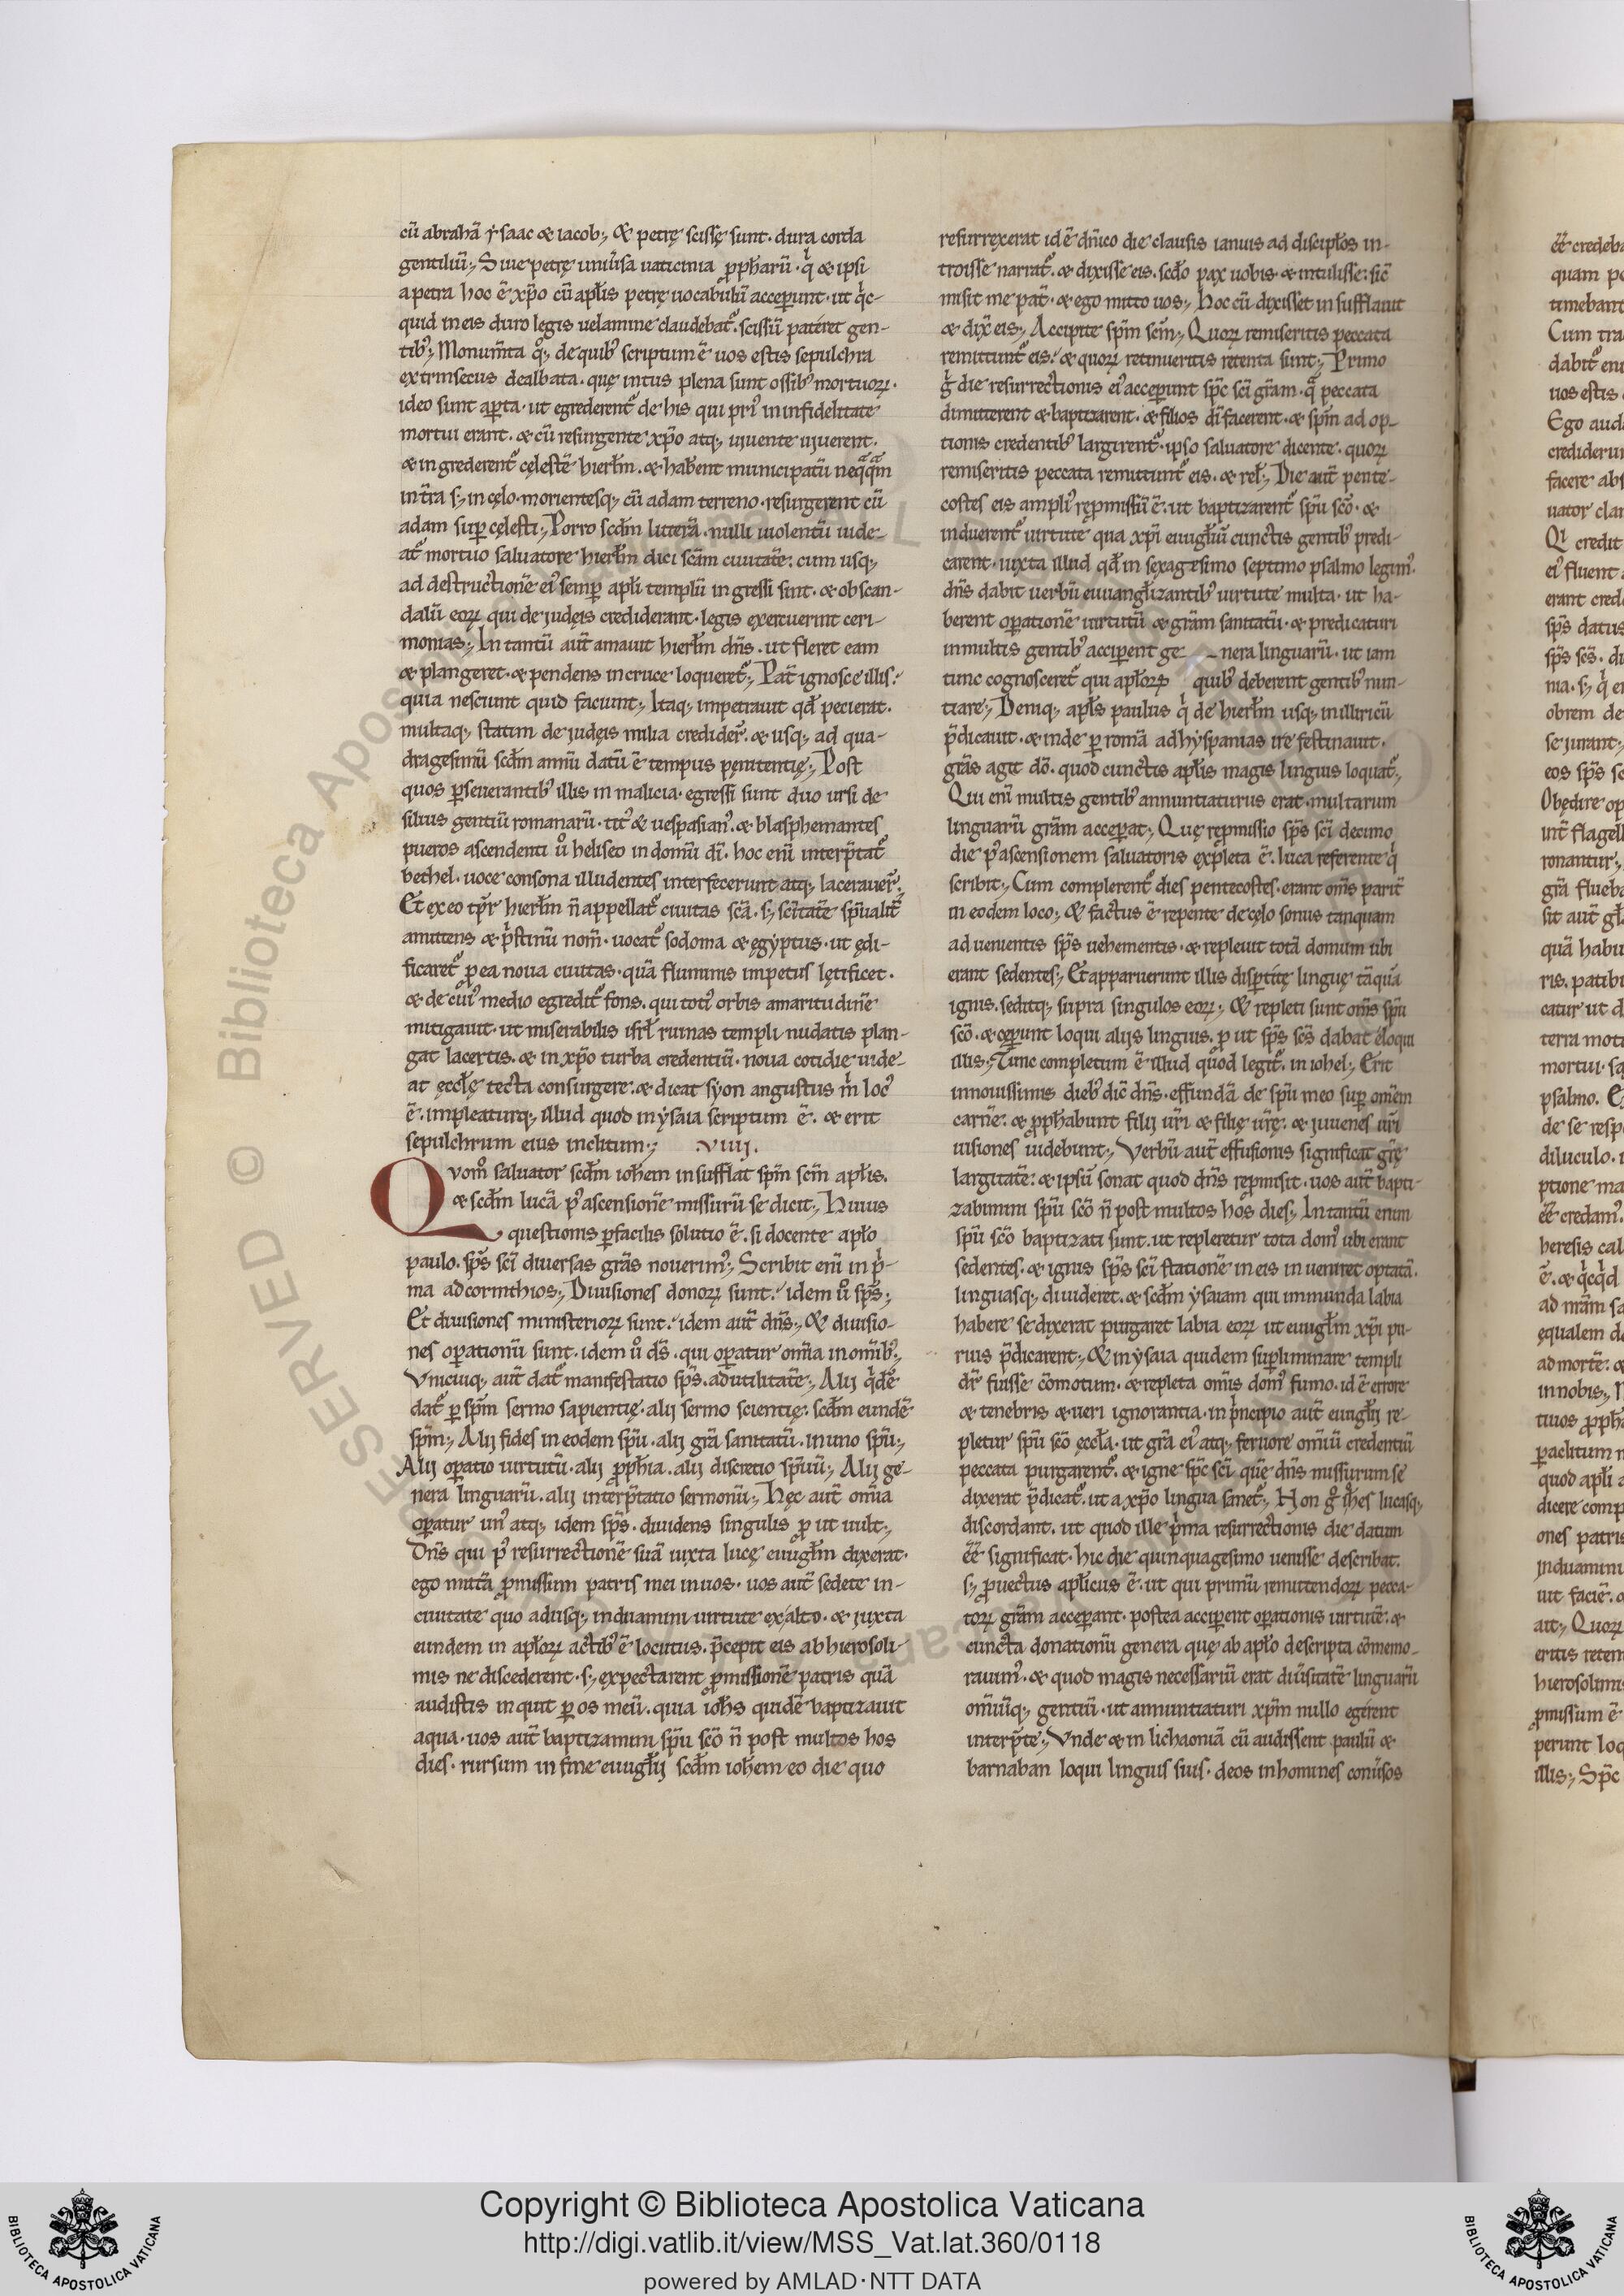 cū abrahā ẏsaac & iacob; & petrę scissę sunt. dura corda
gentiliū; Siue petrę uniũsa uaticinia ꝓpharū. q̍ & ipsi
a petra hoc ē xp̄o cū apl̄is petrę uocabulū acceperunt. ut q̍c-
quid in eis duro legis uelamine claudebat᷑. scissū pateret gen-
tib᷒; Monum̄ta q°; de quib᷒ scriptum ē uos estis sepulchra
extrinsecus dealbata. quę intus plena sunt ossib᷒ mortuoꝝ.
ideo sunt aꝑta. ut egrederent᷑ de his qui pri᷒ in infidelitate
mortui erant. & cū resurgente xp̄o atq; uiuente uiuerent.
& ingrederent᷑ cęlestē hierl̄m. & hab̄ent municipatū neq̄q̄m
in t̄ra s; in cęlo. morientesq; cū adam terreno. resurgerent cū
adam suꝑ cęlesti; Porro scd̄m litterā. nulli uiolentū uide-
at᷑ mortuo saluatore hierl̄m dici scām ciuitatē: cum usq;
ad destructionē ei᷒ semꝑ apl̄i templū ingressi sint. & ob scan-
dalū eoꝝ qui de iudęis crediderant. legis exercuerint ceri-
monias; In tantū aut̄ amauit hierl̄m dn̄s. ut fleret eam
& plangeret. & pendens in cruce loqueret᷑; Pat̄ ignosce illis.
quia nesciunt quid faciunt; Itaq; impetrauit qd̄ petierat.
multaq; statim de iudęis milia credider̄. & usq; ad qua-
dragesimū scd̄m annū datū ē tempus pęnitentię; Post
quos ꝑseuerantib᷒ illis in malicia. egressi sunt duo ursi de
siluis gentiū romanarū. tit᷒ & uespasian᷒. & blasphemantes
pueros ascendenti u° heliseo in domū dī. hoc enī interp̄tat᷑
bethel. uoce consona illudentes interfecerunt atq; lacerauer̄.
Et ex eo tp̄r hierl̄m n̄ appellat᷑ ciuitas scā. s; scītatē sp̄ualit̄
amittens & p̍stinū nom̄. uocat᷑ sodoma & ęgẏptus. ut ędi-
ficaret᷑ ꝓ ea noua ciuitas. quā fluminis impetus lętificet.
& de cui᷒ medio egredit᷑ fons. qui toti᷒ orbis amaritudinē
mitigauit. ut miserabilis isrl̄ ruinas templi nudatis plan-
gat lacertis. & in xp̄o turba credentiū. noua cotidie uide-
at ęccl̄ę tecta consurgere. & dicat sẏon angustus m̍ loc᷒
ē. impleaturq; illud quod in ẏsaia scriptum ē. & erit
sepulchrum eius inclitum; VIIIJ.
Qvom° saluator scd̄m ioh̄em insufflat sp̄m scm̄ apl̄is.
& scd̄m lucā p᷒ ascensionē missurū se dicit; Huius
questionis ꝑfacilis solutio ē. si docente apl̄o
paulo. sp̄s scī diuersas grās nouerim᷒; Scribit enī in p̍-
ma ad corinthios; Diuisiones donoꝝ sunt. idem u° sp̄s;
Et diuisiones ministerioꝝ sunt. idem aut̄ dn̄s; & diuisio-
nes oꝑationū sunt. idem u° ds̄. qui oꝑatur omīa in omīb᷒;
Vnicuiq; aut̄ dat᷑ manifestatio sp̄s. ad utilitatē; Alij q̍dē
dat᷑ ꝑ sp̄m sermo sapientię. alij sermo scientię. scd̄m eundē
sp̄m; Alij fides in eodem sp̄u. alij grā sanitatū. in uno sp̄u;
Alij oꝑatio uirtutū. alij ꝓph̄ia. alij discretio sp̄uū; Alij ge-
nera linguarū. alij interp̄tatio sermonū; Hęc aut̄ omīa
oꝑatur un᷒ atq; idem sp̄s. diuidens singulis ꝓ ut uult;
Dn̄s qui p᷒ resurrectionē suā iuxta lucę euugl̄m dixerat.
ego mittā ꝓmissum patris mei in uos. uos aut̄ sedete in-
ciuitate quo adusq; induamini uirtute ex alto. & iuxta
eundem in apl̄oꝝ actib᷒ ē locutus. p̄cepit eis ab hierosoli-
mis ne discederent. s; expectarent ꝓmissionē patris quā
audistis inquit ꝑ os meū. quia ioh̄s quidē baptizauit
aqua. uos aut̄ baptizamini sp̄u scō n̄ post multos hos
dies. rursum in fine euugl̄ij scd̄m ioh̄em eo die quo
resurrexerat id ē dn̄ico die clausis ianuis ad discipl̄os in-
troisse narrat᷑. & dixisse eis. scd̄o pax uobis. & intulisse: sic̄
misit me pat̄. & ego mitto uos; Hoc cū dixisset insufflauit
& dix̄ eis; Accipite sp̄m scm̄; Quoꝝ remiseritis peccata
remittunt᷑ eis. & quoꝝ retinueritis retenta sunt; Primo
g̍ die resurrectionis ei᷒ acceperunt sp̄c scī grām. q̄ peccata
dimitterent & baptizarent. & filios dī facerent. & sp̄m adop-
tionis credentib᷒ largirent᷑. ipso saluatore dicente. quoꝝ
remiseritis peccata remittunt᷑ eis. & rel̄; Die aut̄ pente-
costes eis ampli᷒ reꝓmissū ē. ut baptizarent᷑ sp̄u scō. &
induerent᷑ uirtute qua xp̄i euugl̄iū cunctis gentib᷒ predi-
carent. iuxta illud qd̄ in sexagesimo septimo psalmo legim᷒.
dn̄s dabit uerbū euuangl̄izantib᷒ uirtute multa. ut ha-
berent oꝑationē uirtutū & grām sanitatū. & predicaturi
in multis gentib᷒ acciperent ge - nera linguarū. ut iam
tunc cognosceret᷑ qui apl̄oꝝ quib᷒ deberent gentib᷒ nun-
tiare; Deniq; apl̄s paulus q̍ de hierl̄m usq; in illiricū
p̄dicauit. & inde ꝑ romā ad hẏspanias ire festinauit.
grās agit dō. quod cunctis apl̄is magis linguis loquat᷑;
Qui enī multis gentib᷒ annuntiaturus erat. multarum
linguarū grām acceperat; Quę reꝓmissio sp̄s scī decimo
die p᷒ ascensionem saluatoris expleta ē. luca referente q̍
scribit; Cum complerent᷑ dies pentecostes. erant om̄s parit̄
in eodem loco; & factus ē repente de cęlo sonus tanquam
aduenientis sp̄s uehementis. & repleuit totā domum ubi
erant sedentes; Et apparuerunt illis disꝑtitę linguę tāquā
ignis. seditq; supra singulos eoꝝ; & repleti sunt om̄s sp̄u
scō. & cęperunt loqui alijs linguis. ꝓ ut sp̄s scs̄ dabat eloqui
illis; Tunc completum ē illud quod legit᷑. in iohel; Erit
in nouissimis dieb᷒ dic̄ dn̄s. effundā de sp̄u meo suꝑ omēm
carnē. & ꝓph̄abunt filij ur̄i & filię ur̄ę. & iuuenes ur̄i
uisiones uidebunt; Verbū aut̄ effusionis significat grę̄
largitatē. & ipsū sonat quod dn̄s reꝓmisit. uos aut̄ bapti-
zabimini sp̄u scō n̄ post multos hos dies; In tantū enim
sp̄u scō baptizati sunt. ut repleretur tota dom᷒ ubi erant
sedentes. & ignis sp̄s scī stationē in eis inueniret optatā.
linguasq; diuideret. & scd̄m ẏsaiam qui immunda labia
habere se dixerat purgaret labia eoꝝ ut euugl̄m xp̄i pu-
rius p̄dicarent; & in ẏsaia quidem suꝑliminare templi
dr̄ fuisse cōmotum. & repleta omīs dom᷒ fumo. id ē errore
& tenebris & ueri ignorantia. in p̍ncipio aut̄ euugl̄ij re-
pletur sp̄u scō ęccl̄a. ut grā ei᷒ atq; feruore omīū credentiū
peccata purgarent᷑. & igne sp̄c scī quē dn̄s missurum se
dixerat p̄dicat᷑. ut a xp̄o lingua sanet᷑; Non g° ioh̄es lucasq;
discordant. ut quod ille p̍ma resurrectionis die datum
ēē significat. hic die quinquagesimo uenisse describat.
s; ꝓuectus apl̄icus ē. ut qui primū remittendoꝝ pecca-
toꝝ grām acceperant. postea acciperent oꝑationis uirtutē. &
cuncta donationū genera quę ab apl̄o descripta cōmemo-
rauim᷒. & quod magis necessariū erat diũsitatē linguarū
omīūq; gentiū. ut annuntiaturi xp̄m nullo egerent
interp̄te; Vnde & in lichaoniā cū audissent paulū &
barnaban loqui linguis suis. deos in homines conũsos
ēē credeba
quam pe
timebant
Cum tra
dabit᷑ eni
uos estis
Ego aud
crediderun
facere abs
uator clan
Qi credit
ei᷒ fluent
erant crede
sp̄s datus
sp̄s scs̄. di
nia. s; q̍ e
obrem de
se iurant;
eos sp̄s sc
Obędire op
int̄ flagell
ronantur;
grā flueba
sit aut̄ gl
quā habu
ris. patibu
catur ut d
terra mot
mortui. sa
psalmo. E
de se resp
diluculo. i
ptione ma
ēē credam᷒
heresis cal
ē. & q̍cq̍d
ad nrām sa
ęqualem de
ad mortē. &
in nobis;
tiuos ꝓph
ꝑaclitum n
quod apl̄i a
dicere comp
ones patris
induamini
uit faciē. &
ait; Quoꝝ
eritis reten
hierosolimis
ꝓmissum ē
perunt loq
illis; Sp̄c
Copyright © Biblioteca Apostolica Vaticana
http://digi.vatlib.it/view/MSS_Vat.lat.360/0118
powered by AMLAD·NTT DATA
BIBLIOTECA APOSTOLICA VATICANA
BIBLIOTECA APOSTOLICA VATICANA